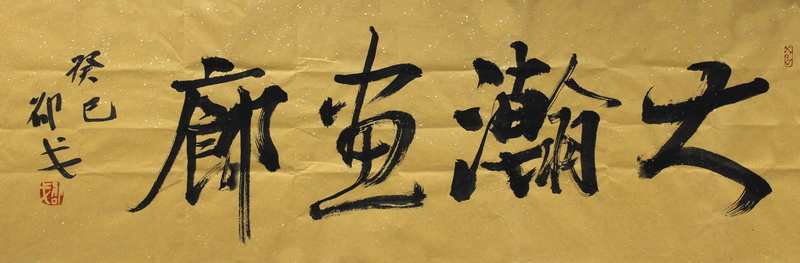 大瀚畫廊
癸巳
邵戈